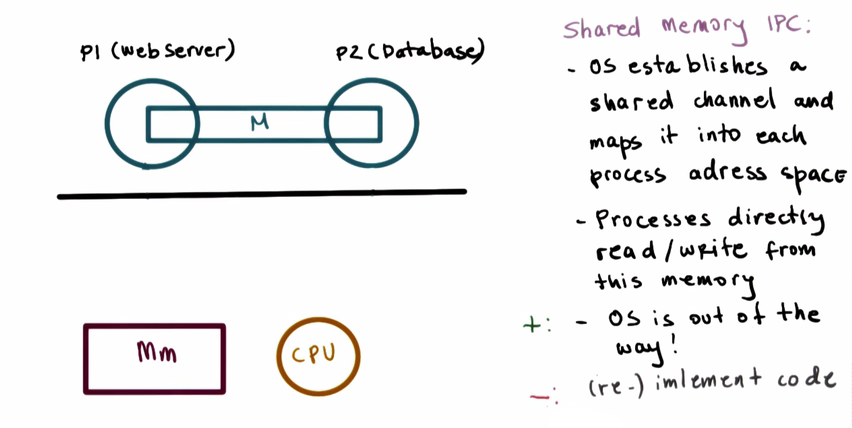 P1 (Web Server)
P2 (Database)
M
Mm
CPU
Shared Memory IPC:
- OS establishes a
shared channel and
maps it into each
process adress space
- Processes directly
read/write from
this memory
+: - OS is out of the
way!
-: (re-) imlement code